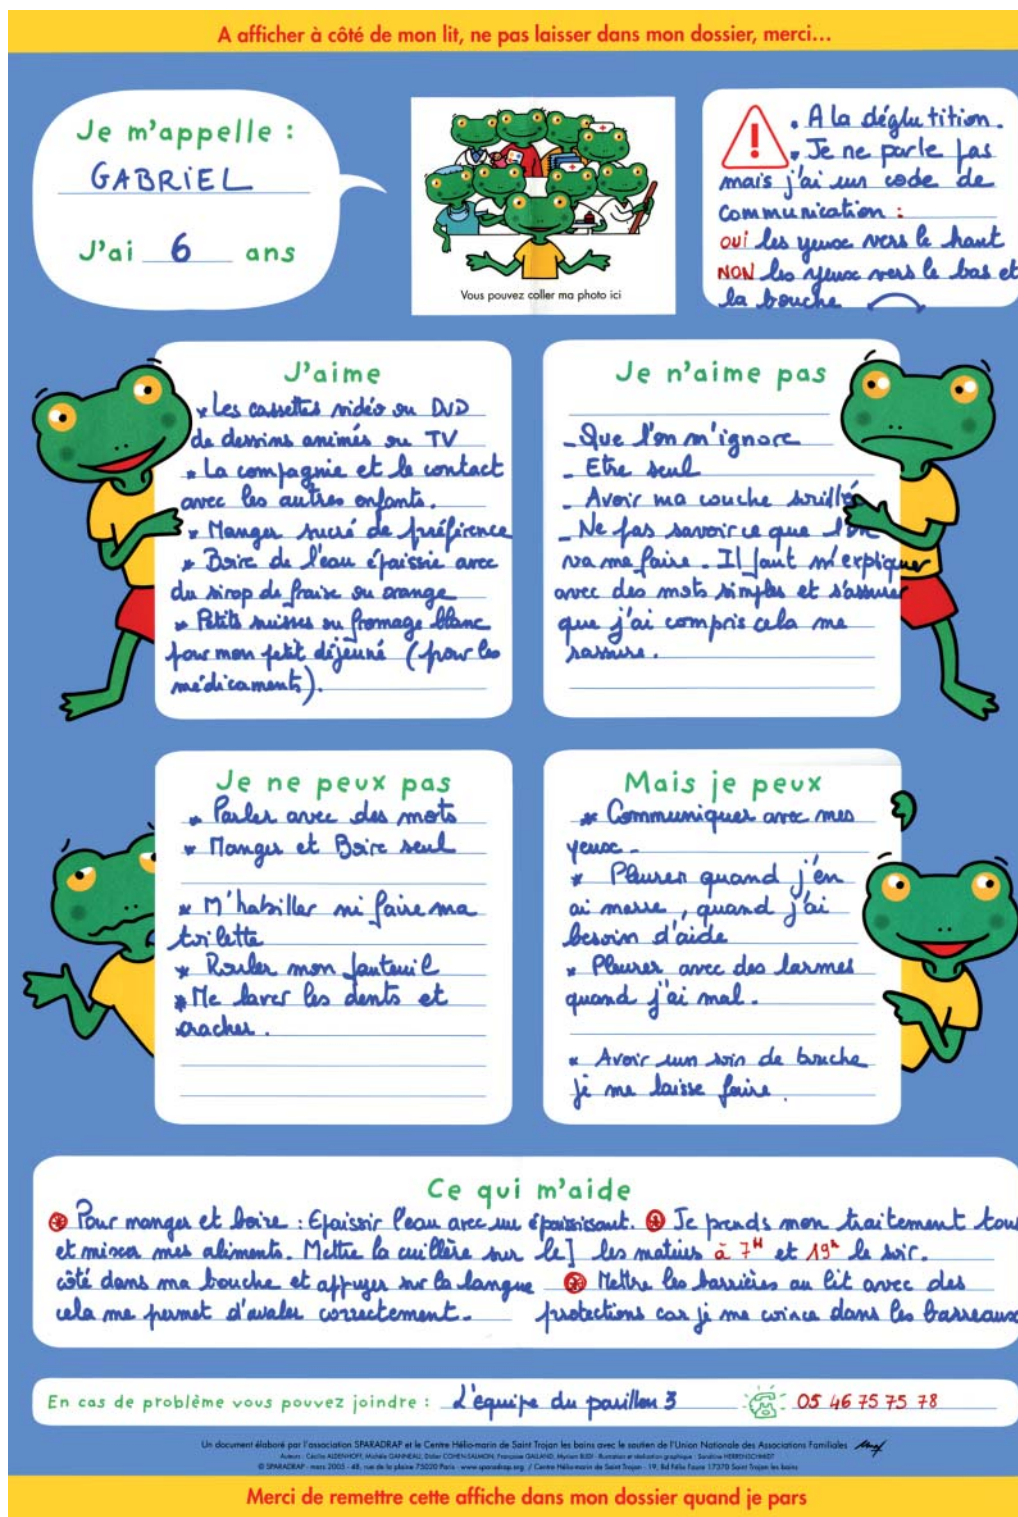 A afficher à côté de mon lit, ne pas laisser dans mon dossier, merci...
Je m'appelle :
GABRIEL
J'ai 6 ans
Vous pouvez coller ma photo ici
! • A la déglutition.
• Je ne parle pas
mais j'ai un code de
communication :
oui les yeux vers le haut
NON les yeux vers le bas et
la bouche
J'aime
* Les cassettes vidéo ou DVD
de dessins animés ou TV
* La compagnie et le contact
avec les autres enfants.
* Manger sucré de préférence
* Boire de l'eau épaissie avec
du sirop de fraise ou orange
* Petits suisses ou fromage blanc
pour mon petit déjeuné (pour les
médicaments).
Je n'aime pas
- Que l'on m'ignore
- Etre seul
- Avoir ma couche souillée
- Ne pas savoir ce que l'on
va me faire. Il faut m'expliquer
avec des mots simples et s'assurer
que j'ai compris cela me
rassure.
Je ne peux pas
* Parler avec des mots
* Manger et Boire seul
* M'habiller ni faire ma
toilette
* Rouler mon fauteuil
* Me laver les dents et
cracher.
Mais je peux
* Communiquer avec mes
yeux -
* Pleurer quand j'en
ai marre, quand j'ai
besoin d'aide
* Pleurer avec des larmes
quand j'ai mal.
* Avoir un soin de bouche
je me laisse faire.
Ce qui m'aide
* Pour manger et boire : Epaissir l'eau avec un épaississant.
et mixer mes aliments. Mettre la cuillère sur le]
côté dans ma bouche et appuyer sur la langue
cela me permet d'avaler correctement.
* Je prends mon traitement tous
les matins à 7H et 19h le soir.
* Mettre les barrières au lit avec des
protections car je me coince dans les barreaux
En cas de problème vous pouvez joindre : L'équipe du pavillon 3 05 46 75 75 78
Un document élaboré par l'association SPARADRAP et le Centre Hélio-marin de Saint Trojan les bains avec le soutien de l'Union Nationale des Associations Familiales
© SPARADRAP - mars 2005 - 48, rue de la plaine 75020 Paris - www.sparadrap.org / Centre Hélio-marin de Saint Trojan - 19, Bd Félix Faure 17370 Saint Trojan les bains
Merci de remettre cette affiche dans mon dossier quand je pars